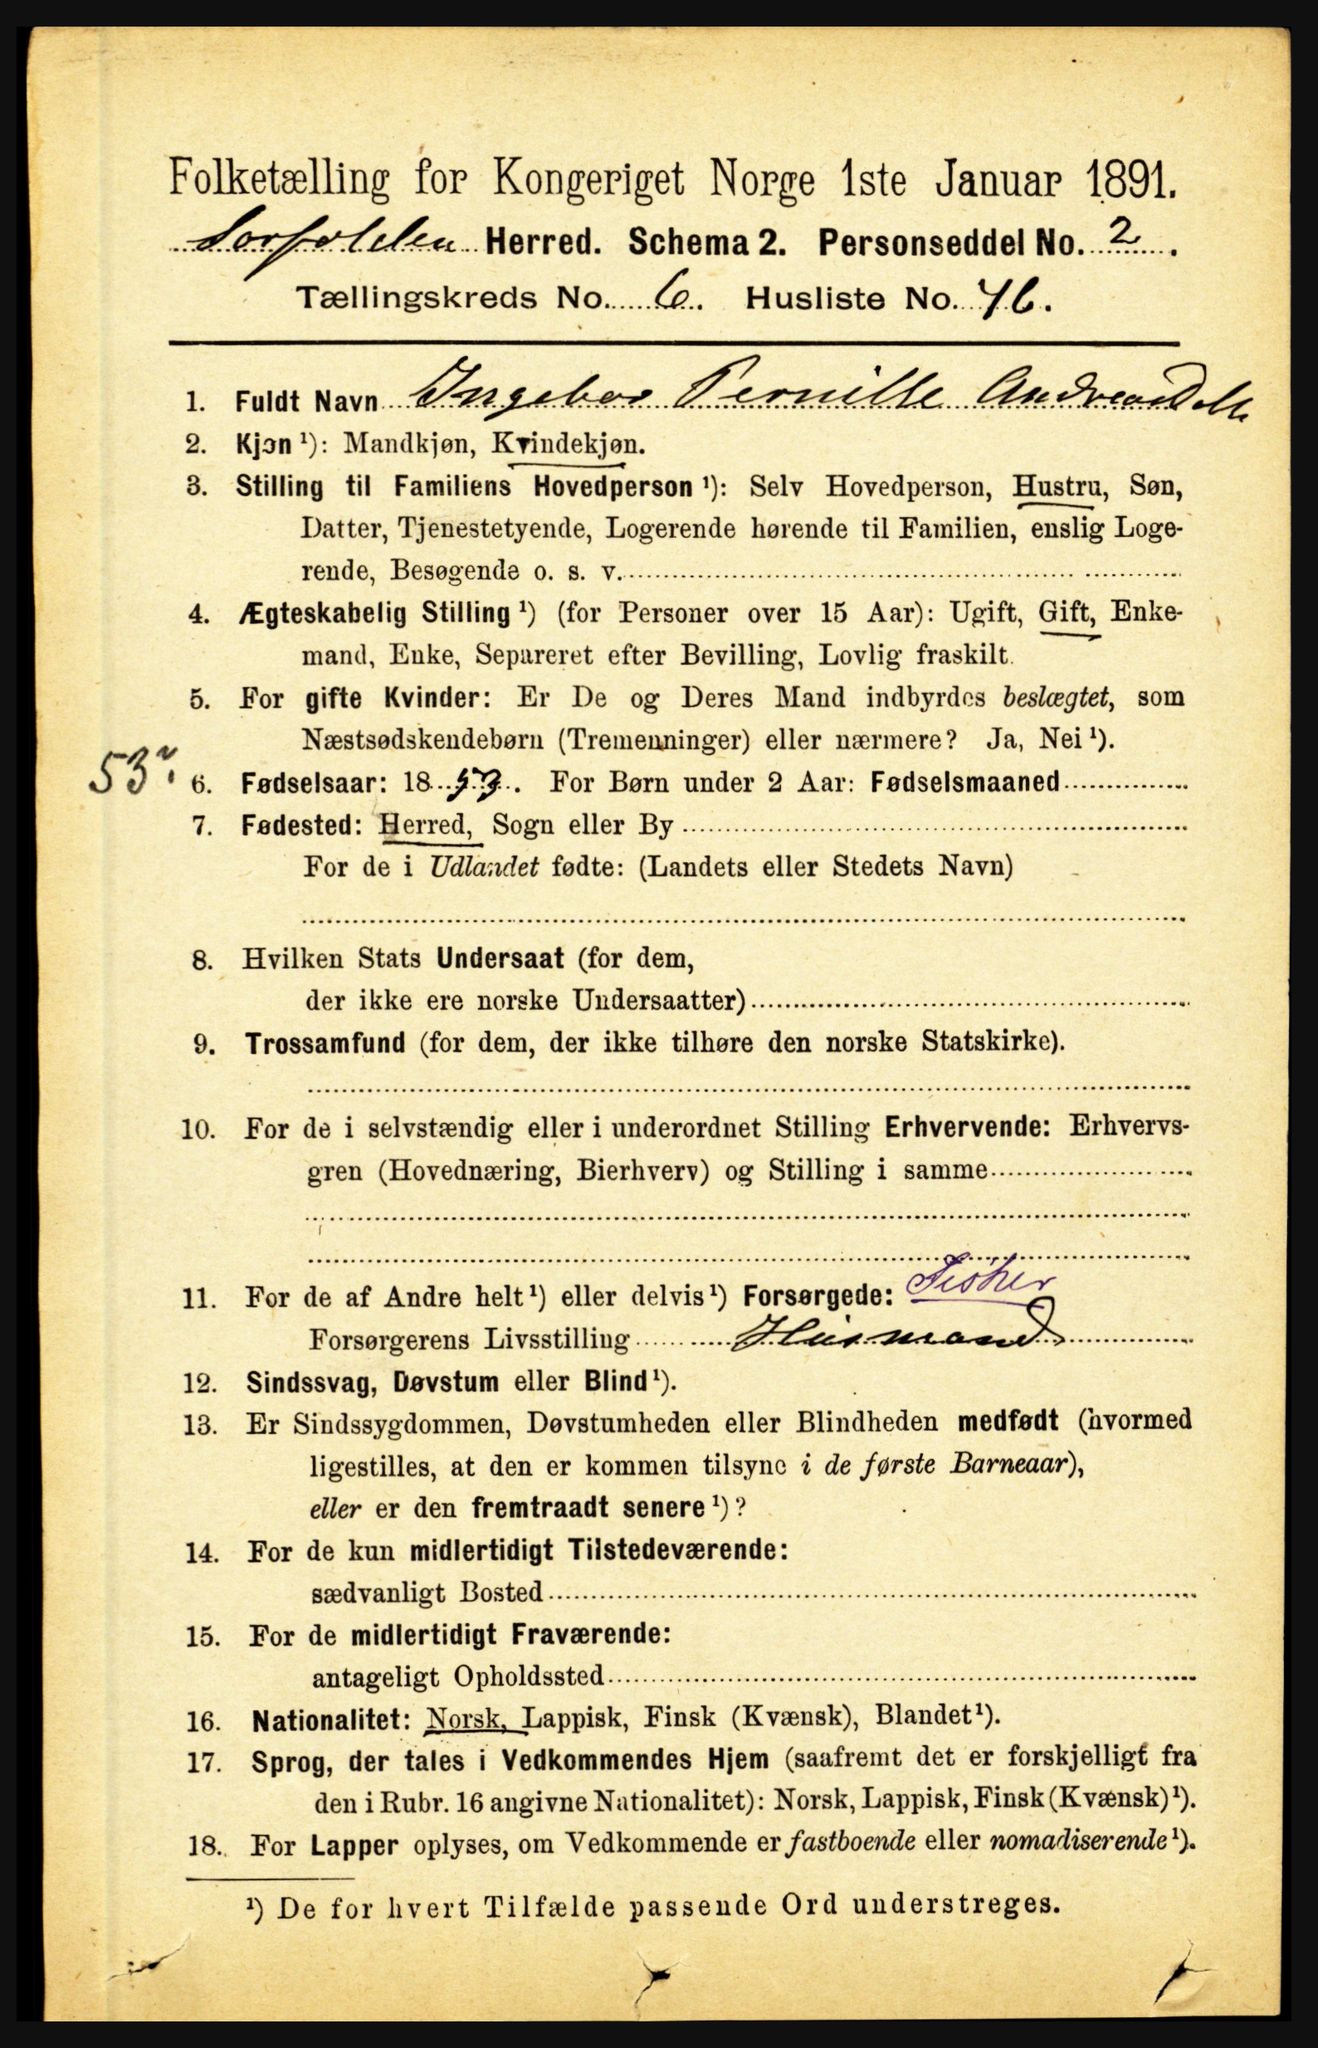 Folketælling for Kongeriget Norge 1ste Januar 1891.
Sørfolden Herred. Schema 2. Personseddel No. 2.
Tællingskreds No. 6. Husliste No. 46.
1. Fuldt Navn Ingebor Pernille Andreasdtt
2. Kjøn ¹): Mandkjøn, Kvindekjøn.
3. Stilling til Familiens Hovedperson ¹): Selv Hovedperson, Hustru, Søn,
Datter, Tjenestetyende, Logerende hørende til Familien, enslig Loge-
rende, Besøgende o. s. v.
4. Ægteskabelig Stilling ¹) (for Personer over 15 Aar): Ugift, Gift, Enke-
mand, Enke, Separeret efter Bevilling, Lovlig fraskilt.
5. For gifte Kvinder: Er De og Deres Mand indbyrdes beslægtet, som
Næstsødskendebørn (Tremenninger) eller nærmere? Ja, Nei ¹).
53
6. Fødselsaar: 1853. For Børn under 2 Aar: Fødselsmaaned
7. Fødested: Herred, Sogn eller By
For de i Udlandet fødte: (Landets eller Stedets Navn)
8. Hvilken Stats Undersaat (for dem,
der ikke ere norske Undersaatter)
9. Trossamfund (for dem, der ikke tilhøre den norske Statskirke).
10. For de i selvstændig eller i underordnet Stilling Erhvervende: Erhvervs-
gren (Hovednæring, Bierhverv) og Stilling i samme
11. For de af Andre helt ¹) eller delvis ¹) Forsørgede: Fisker
Forsørgerens Livsstilling Husmand
12. Sindssvag, Døvstum eller Blind ¹).
13. Er Sindssygdommen, Døvstumheden eller Blindheden medfødt (hvormed
ligestilles, at den er kommen tilsyne i de første Barneaar),
eller er den fremtraadt senere ¹)?
14. For de kun midlertidigt Tilstedeværende:
sædvanligt Bosted
15. For de midlertidigt Fraværende:
antageligt Opholdssted
16. Nationalitet: Norsk, Lappisk, Finsk (Kvænsk), Blandet ¹).
17. Sprog, der tales i Vedkommendes Hjem (saafremt det er forskjelligt fra
den i Rubr. 16 angivne Nationalitet): Norsk, Lappisk, Finsk (Kvænsk) ¹).
18. For Lapper oplyses, om Vedkommende er fastboende eller nomadiserende ¹).
¹) De for hvert Tilfælde passende Ord understreges.